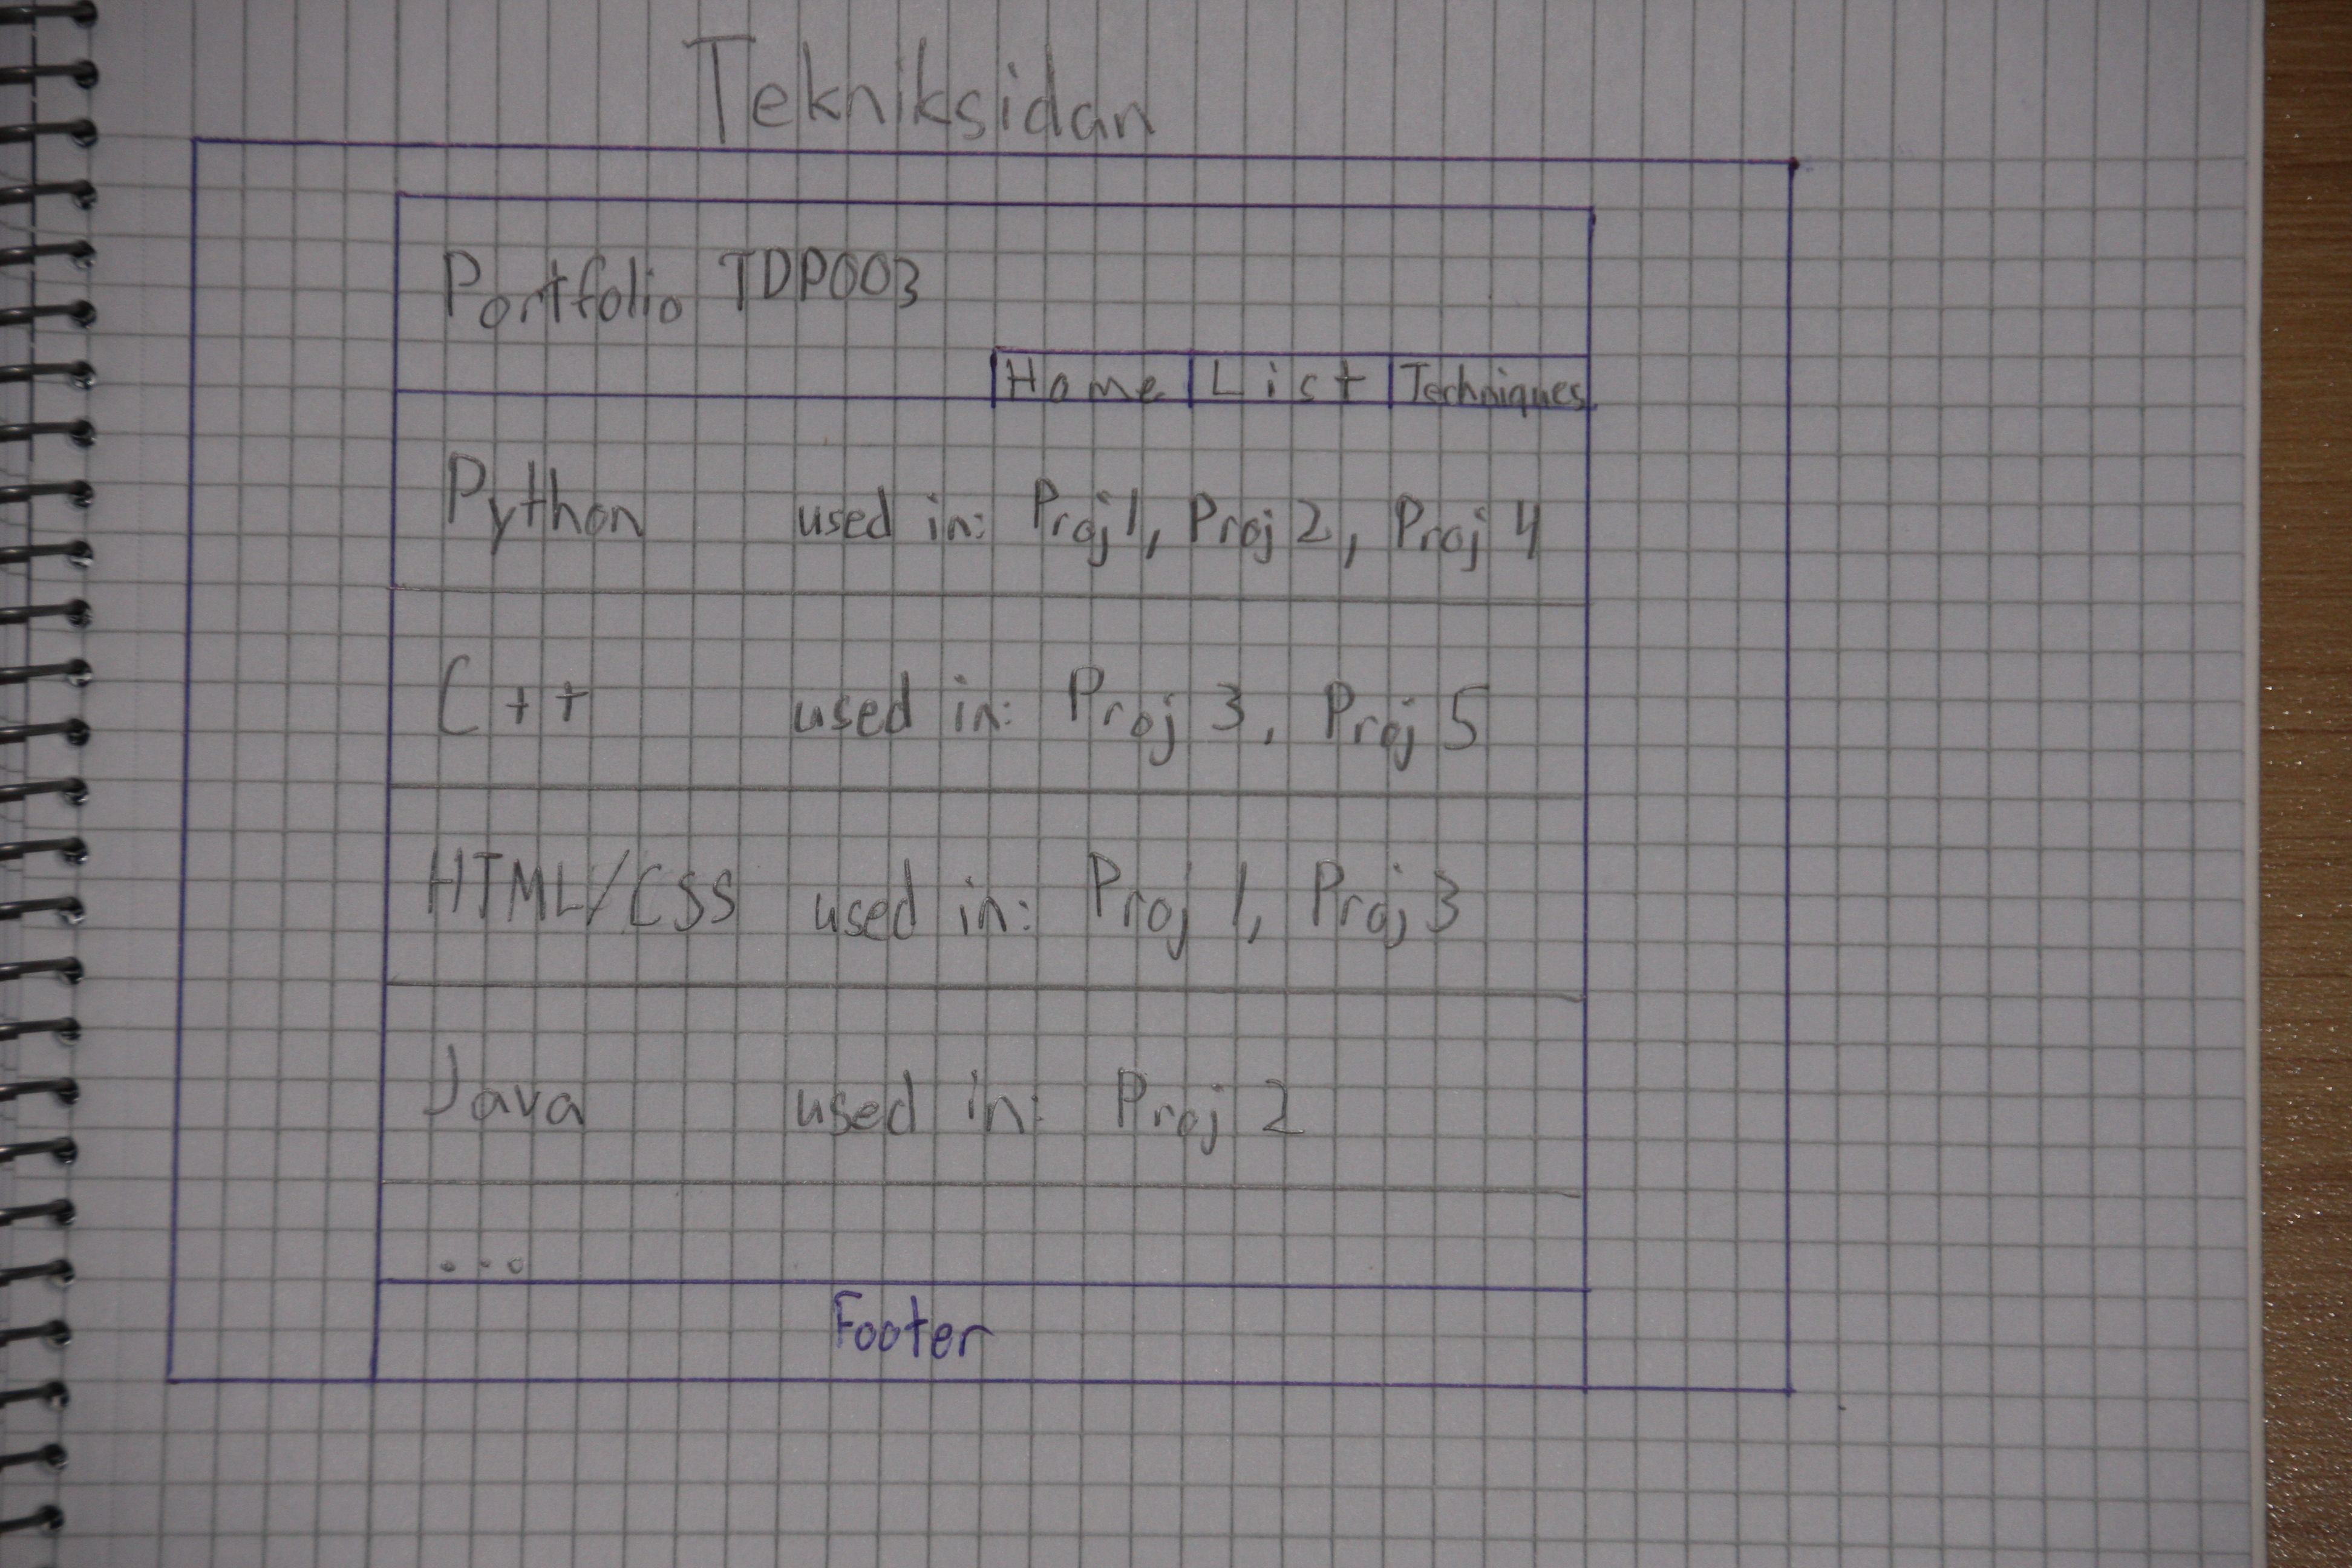 Tekniksidan
Portfolio TDP003
Home List Techniques
Python used in: Proj 1, Proj 2, Proj 4
C++ used in: Proj 3, Proj 5
HTML/CSS used in: Proj 1, Proj 3
Java used in: Proj 2
...
Footer